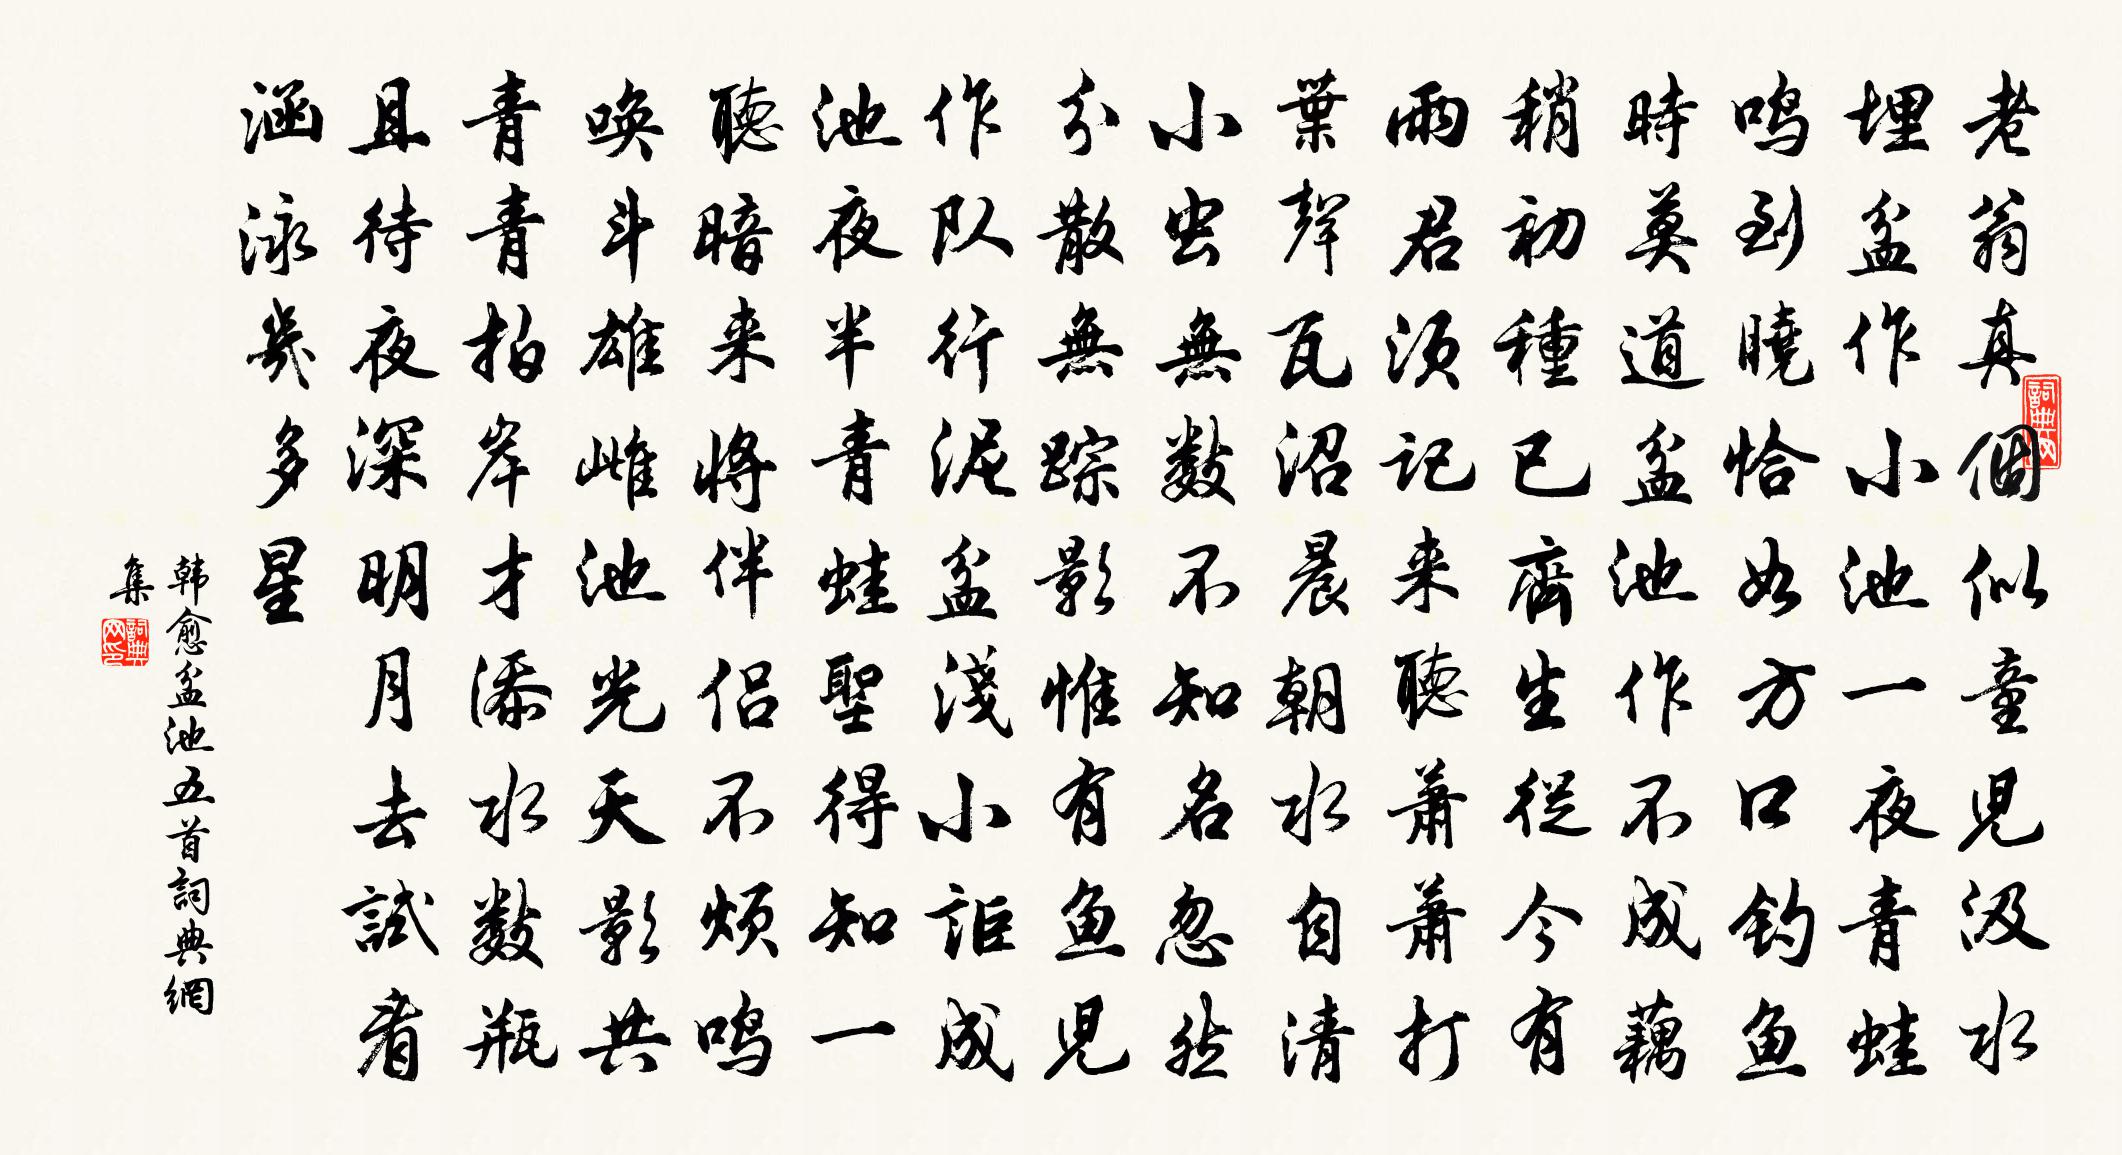 老翁真個似童児汲水
埋盆作小池一夜青蛙
鸣到曉恰如方口钓鱼
時莫道盆池作不成藕
稍初種已齊生從今有
雨君须记来聽萧萧打
葉聲瓦沼晨朝水自清
小虫無数不知名忽然
分散無踪影惟有鱼児
作队行泥盆淺小詎成
池夜半青蛙聖得知一
聽暗来将伴侣不烦鸣
唤斗雄雌池光天影共
青青拍岸才添水数瓶
且待夜深明月去試看
涵泳幾多星
韩愈盆池五首詞典網
集
詞典网
詞典网印